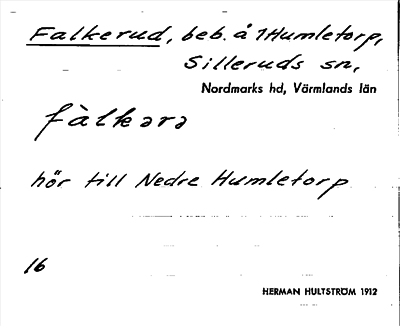 Falkerud, beb. å 1 Humletorp,
Silleruds sn,
Nordmarks hd, Värmlands län
fàlkərə
hör till Nedre Humletorp
16
HERMAN HULTSTRÖM 1912